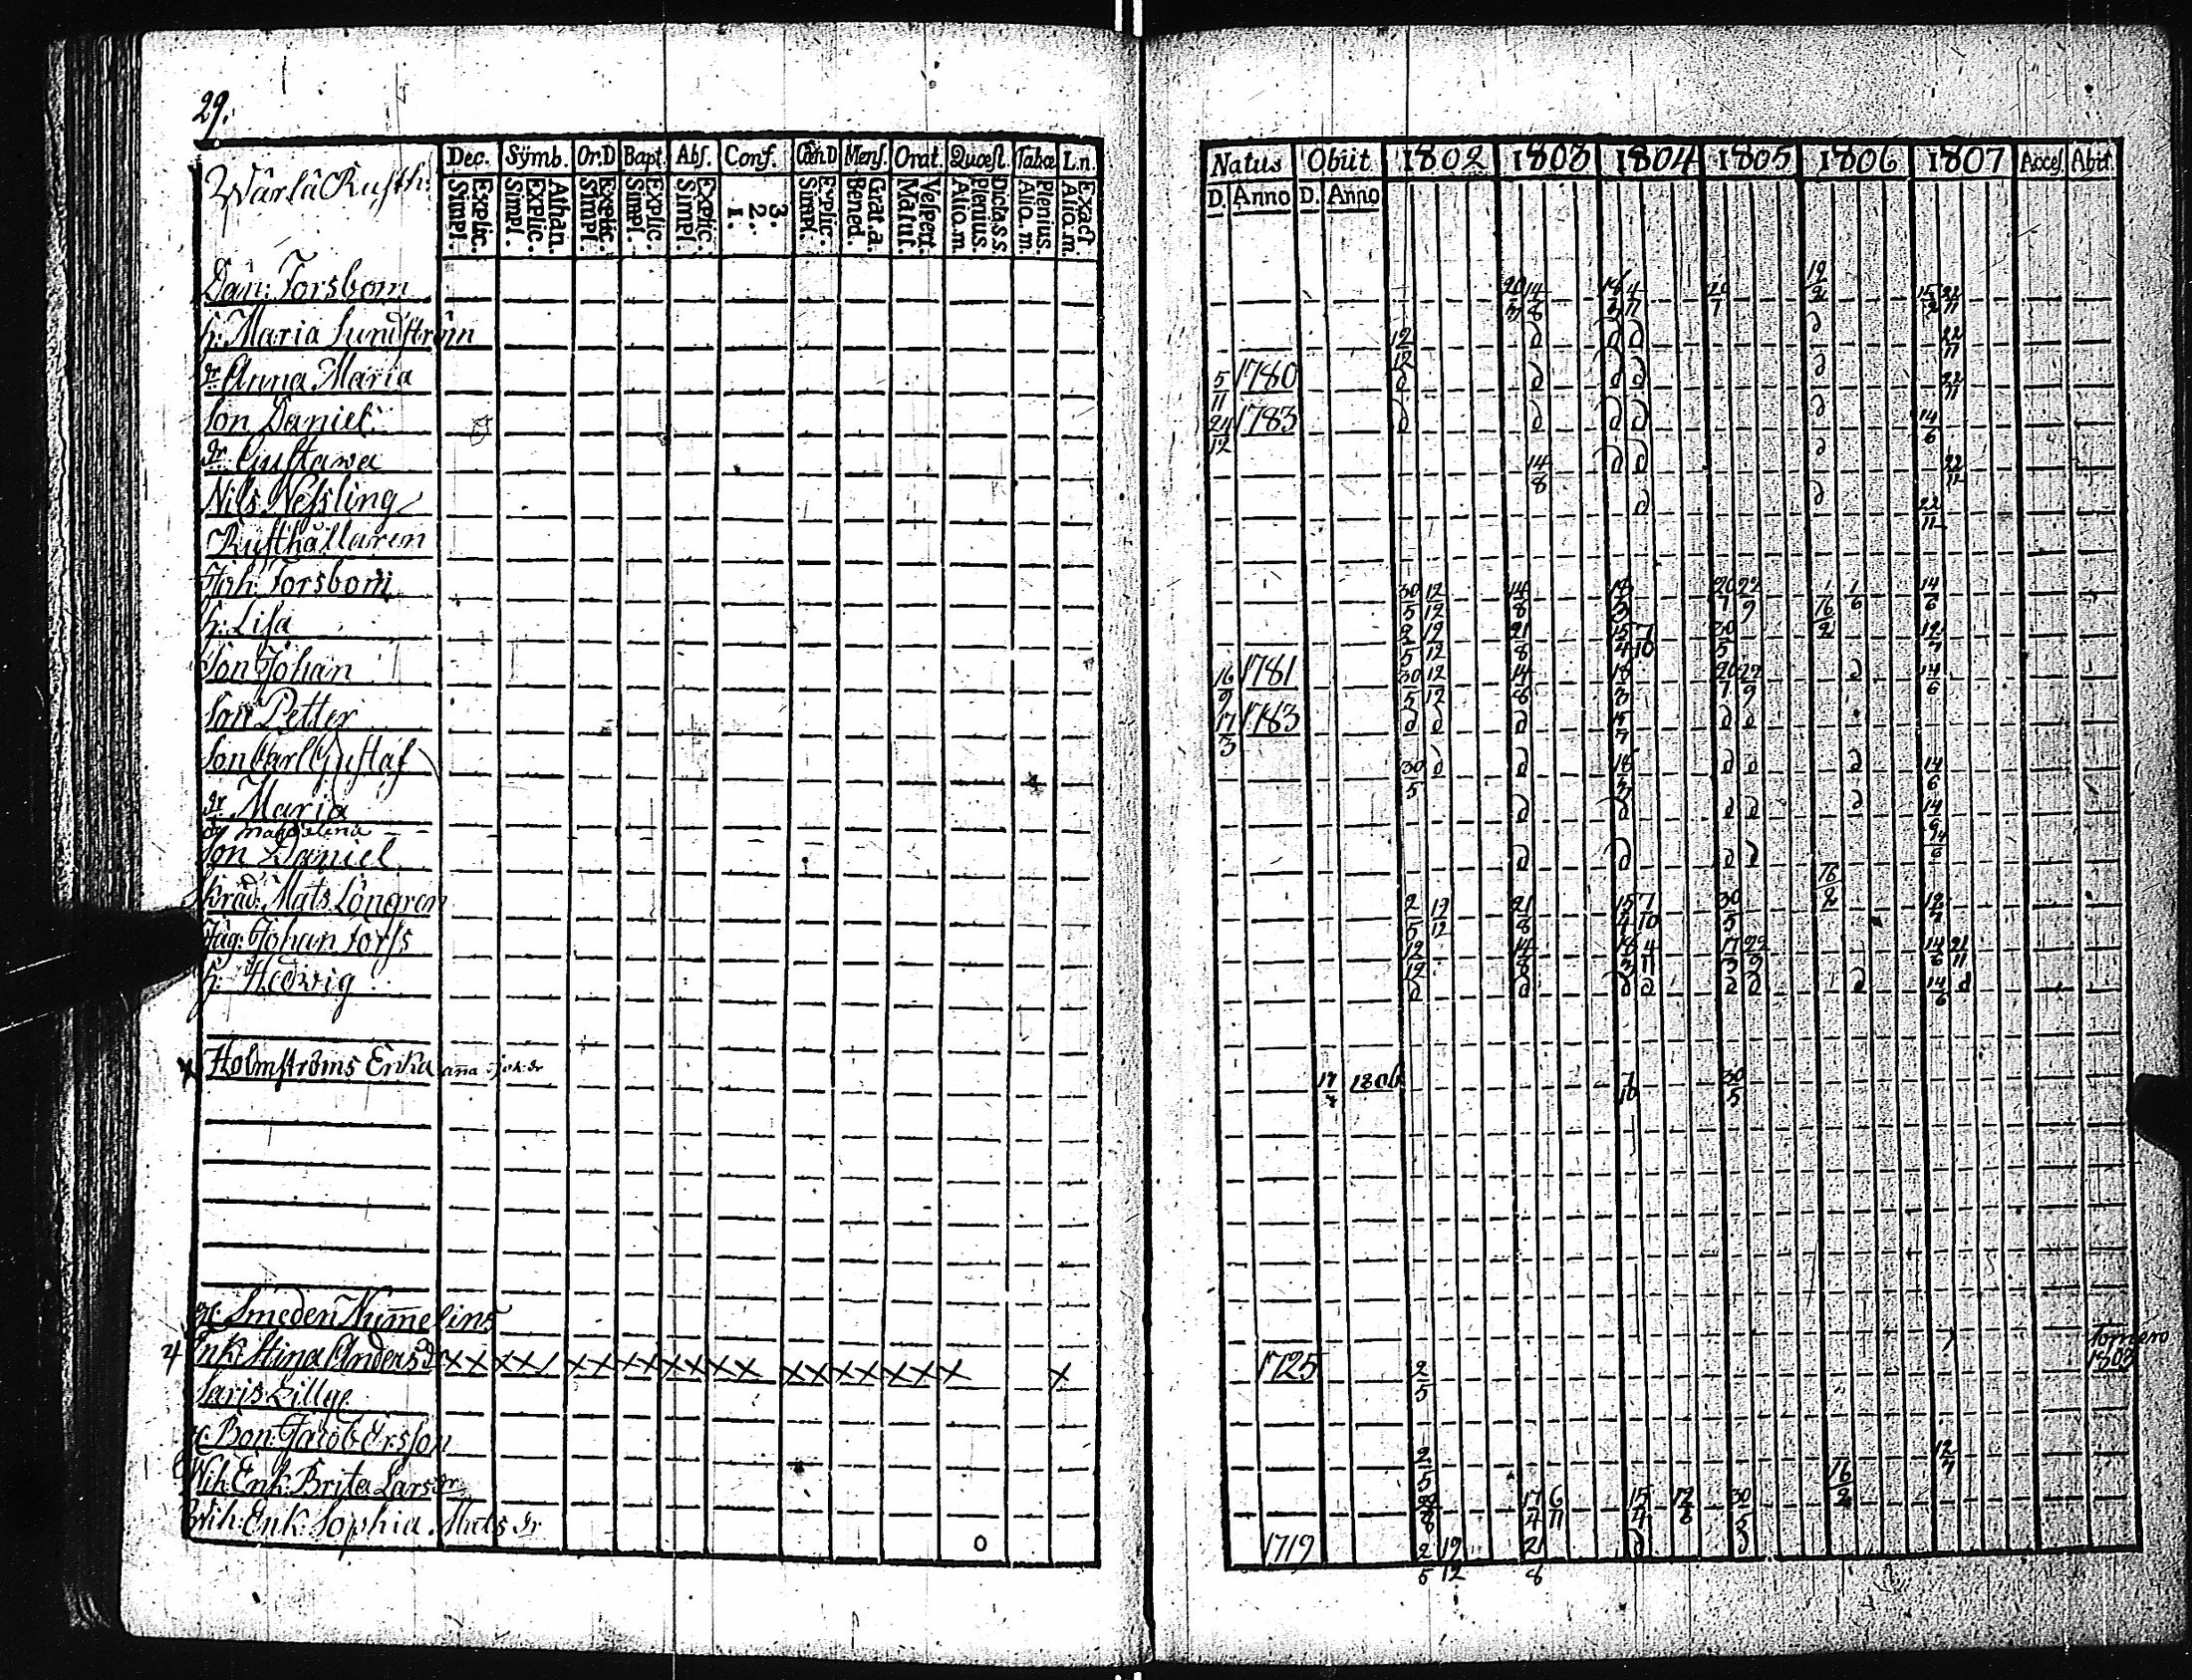 29.
Dec. Sÿmb. Or.D Bapt. Abs. Conf. Cœn.D Mens. Orat. Quæst. Tabæ L.n.
Wärlä Rusth:
Explic. Simpl. Athan. Explic. Simpl. Explic. Simpl. Explic. Simpl. Explic. Simpl. 3. 2. 1. Explic. Simpl. Grat.a. Bened. Vespert. Matut. Dicta.s.s. Plenius. Alio.m. Plenius. Alio.m. Exact Alio.m.
Dan: Forsbom
h: Maria Lundström
dr Anna Maria
Son Daniel
dr Gustawa
Nils Nessling
Rusthållaren
Joh: Forsbom
h: Lisa
Son Johan
Son Petter
Son Carl Gustaf
dr Maria
dr Magdelena
Son Daniel
Skräd: Mats Löngren
Jäg: Johan Forss
h: Hedvig
Holmströms Erika
Smeden Num̄elins
Enk: Stina Anders dr XX XX/ XX XX XX XX XX XX XXX X X
Saris Lillge
Bon: Jacob Ersson
Enk: Brita Lars dr
Enk: Sophia Mats dr o
Natus Obiit 1802 1803 1804 1805 1806 1807 Acces. Abit
D. Anno D. Anno
20/3 14/8 18/3 4/11 20/1 19/2 15/2 22/11
12/12 d d d d 22/11
5/11 1780 d d d d d 22/11
24/12 1783 d d d d d 14/6
14/8 d d d 22/11
d d 22/11
30/5 12/12 14/8 18/3 20/1 22/9 1/6 14/6
2/5 19/12 21/8 15/4 7/10 30/5 16/2 12/7
16/9 1781 30/5 12/12 14/8 18/3 20/1 22/9 d 14/6
17/3 1783 d d d 15/7 d d
30/5 d d 18/3 d d d 14/6
d d d d d 14/6
d d d d
2/5 19/12 21/8 15/4 7/10 30/5 16/2 12/7
12/12 14/8 18/3 4/11 17/3 22/9 14/6 21/11
d d d d d d d 14/6 d
17/7 1806 7/10 30/5
1725 2/5 1803
2/5 16/2 12/7
17/4 6/11 15/4 12/8 30/5
1719 2/5 19/12 21/8 d d